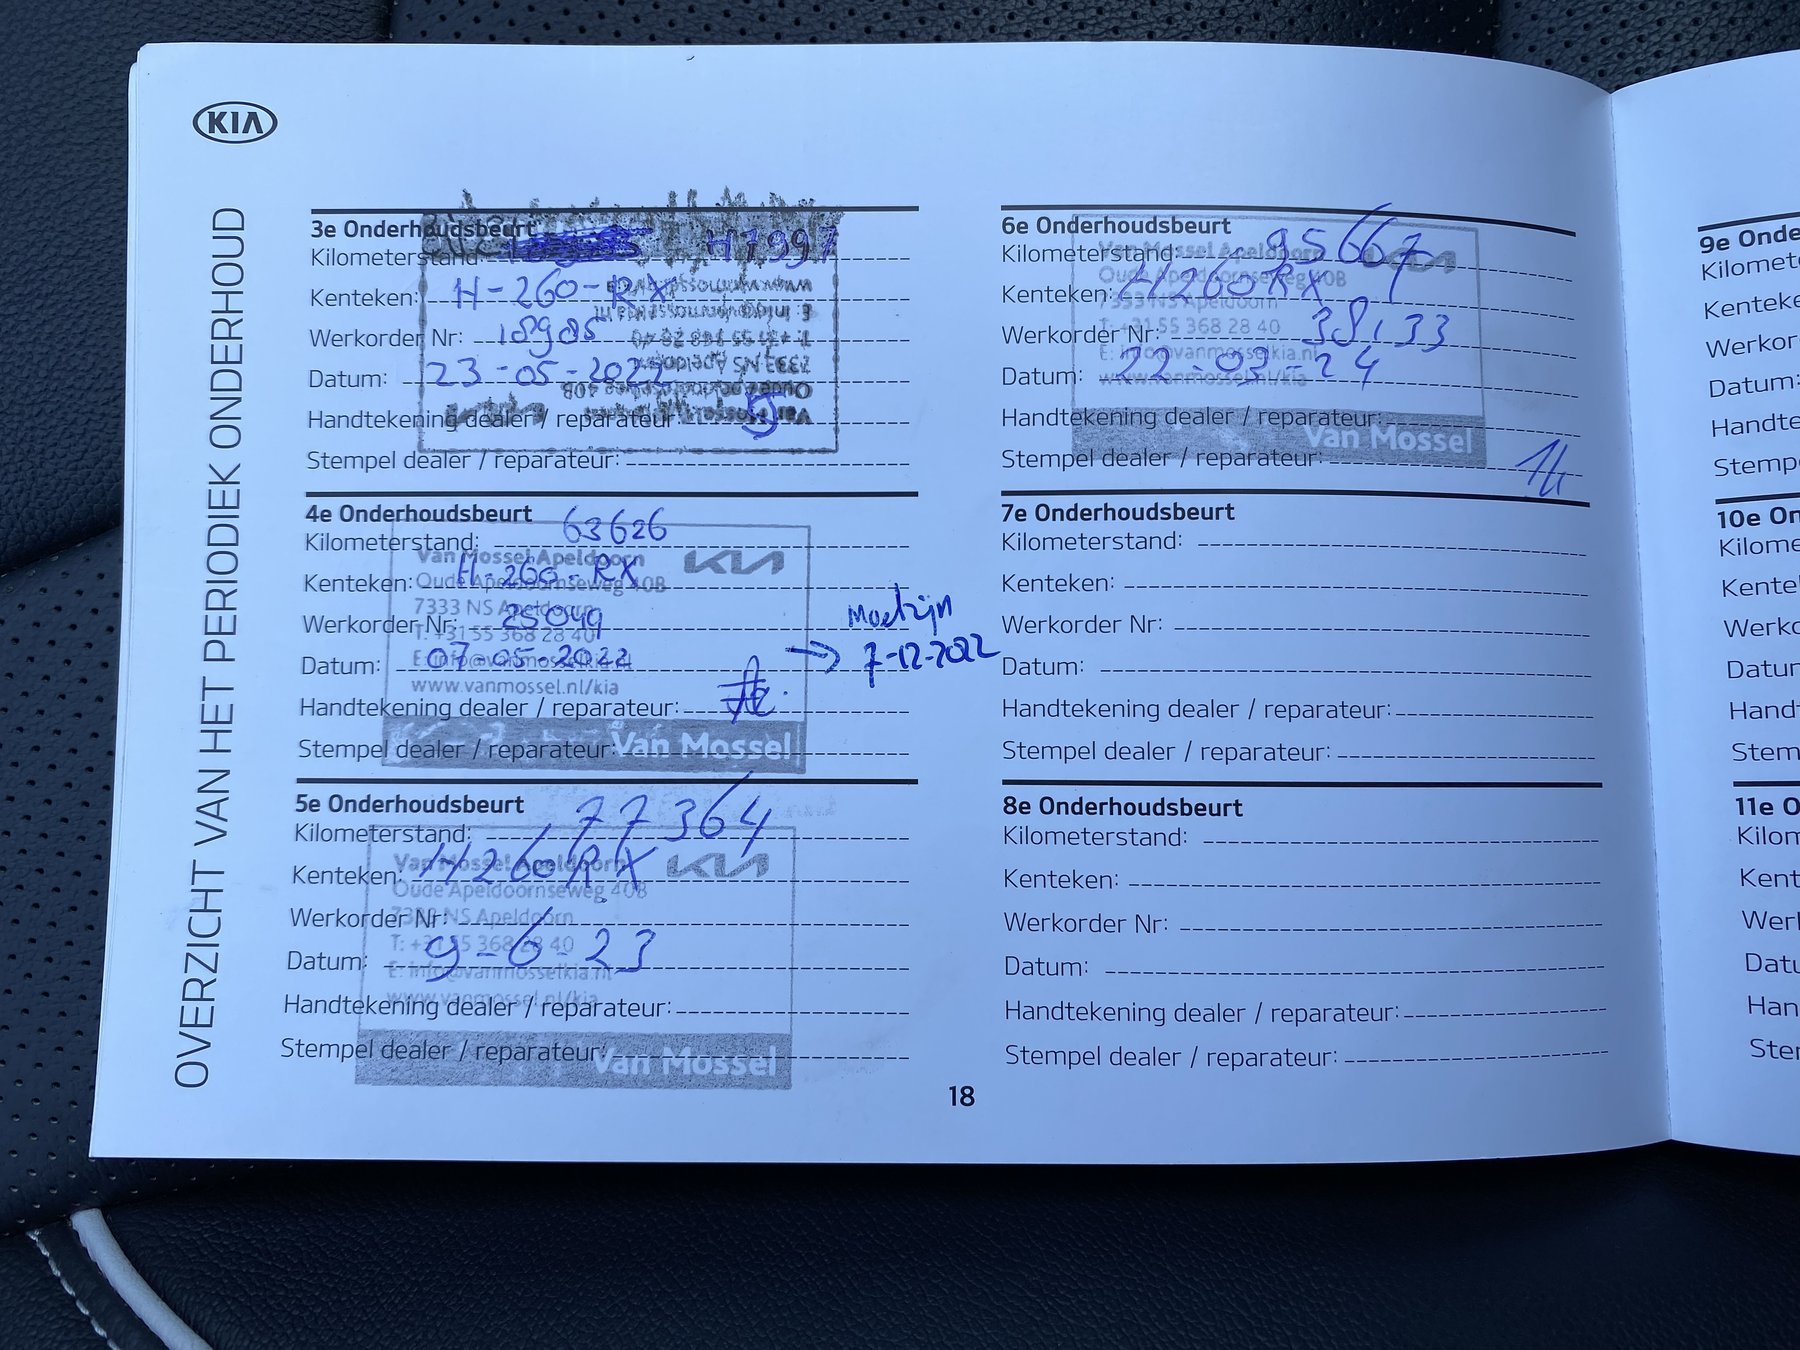 KIA
OVERZICHT VAN HET PERIODIEK ONDERHOUD
3e Onderhoudsbeurt
Kilometerstand H7997
Kenteken: H-260-RX
www.vanmossel.nl/kia
E: info@vanmosselkia.nl
Werkorder Nr: 18985
T: +31 55 368 28 40
Datum: 23-05-2022
7333 NS Apeldoorn
Oude Apeldoornseweg 40B
Handtekening dealer / reparateur:
Van Mossel Apeldoorn
Stempel dealer / reparateur:
4e Onderhoudsbeurt
Kilometerstand: 63626
Van Mossel Apeldoorn KIA
Kenteken: H-260-RX
Oude Apeldoornseweg 40B
7333 NS Apeldoorn
Werkorder Nr: 25049
T: +31 55 368 28 40
Datum: 07-05-2022
E: info@vanmosselkia.nl
www.vanmossel.nl/kia
Handtekening dealer / reparateur:
Stempel dealer / reparateur:
Van Mossel
Moet zijn
7-12-2022
5e Onderhoudsbeurt
Kilometerstand: 77364
Van Mossel Apeldoorn KIA
Kenteken: H260RX
Oude Apeldoornseweg 40B
Werkorder Nr:
7333 NS Apeldoorn
T: +31 55 368 28 40
Datum: 9-6-23
E: info@vanmosselkia.nl
www.vanmossel.nl/kia
Handtekening dealer / reparateur:
Stempel dealer / reparateur:
Van Mossel
6e Onderhoudsbeurt
Kilometerstand: 95667
Van Mossel Apeldoorn KIA
Oude Apeldoornseweg 40B
Kenteken: H260RX
7333 NS Apeldoorn
Werkorder Nr: 38133
T: +31 55 368 28 40
E: info@vanmosselkia.nl
Datum: 22-03-24
www.vanmossel.nl/kia
Handtekening dealer / reparateur:
Van Mossel
Stempel dealer / reparateur:
7e Onderhoudsbeurt
Kilometerstand:
Kenteken:
Werkorder Nr:
Datum:
Handtekening dealer / reparateur:
Stempel dealer / reparateur:
8e Onderhoudsbeurt
Kilometerstand:
Kenteken:
Werkorder Nr:
Datum:
Handtekening dealer / reparateur:
Stempel dealer / reparateur:
18
9e Onde
Kilomete
Kenteke
Werkor
Datum:
Handte
Stemp
10e On
Kilome
Kente
Werko
Datun
Hand
Stem
11e O
Kilon
Kent
Werl
Datu
Han
Ster